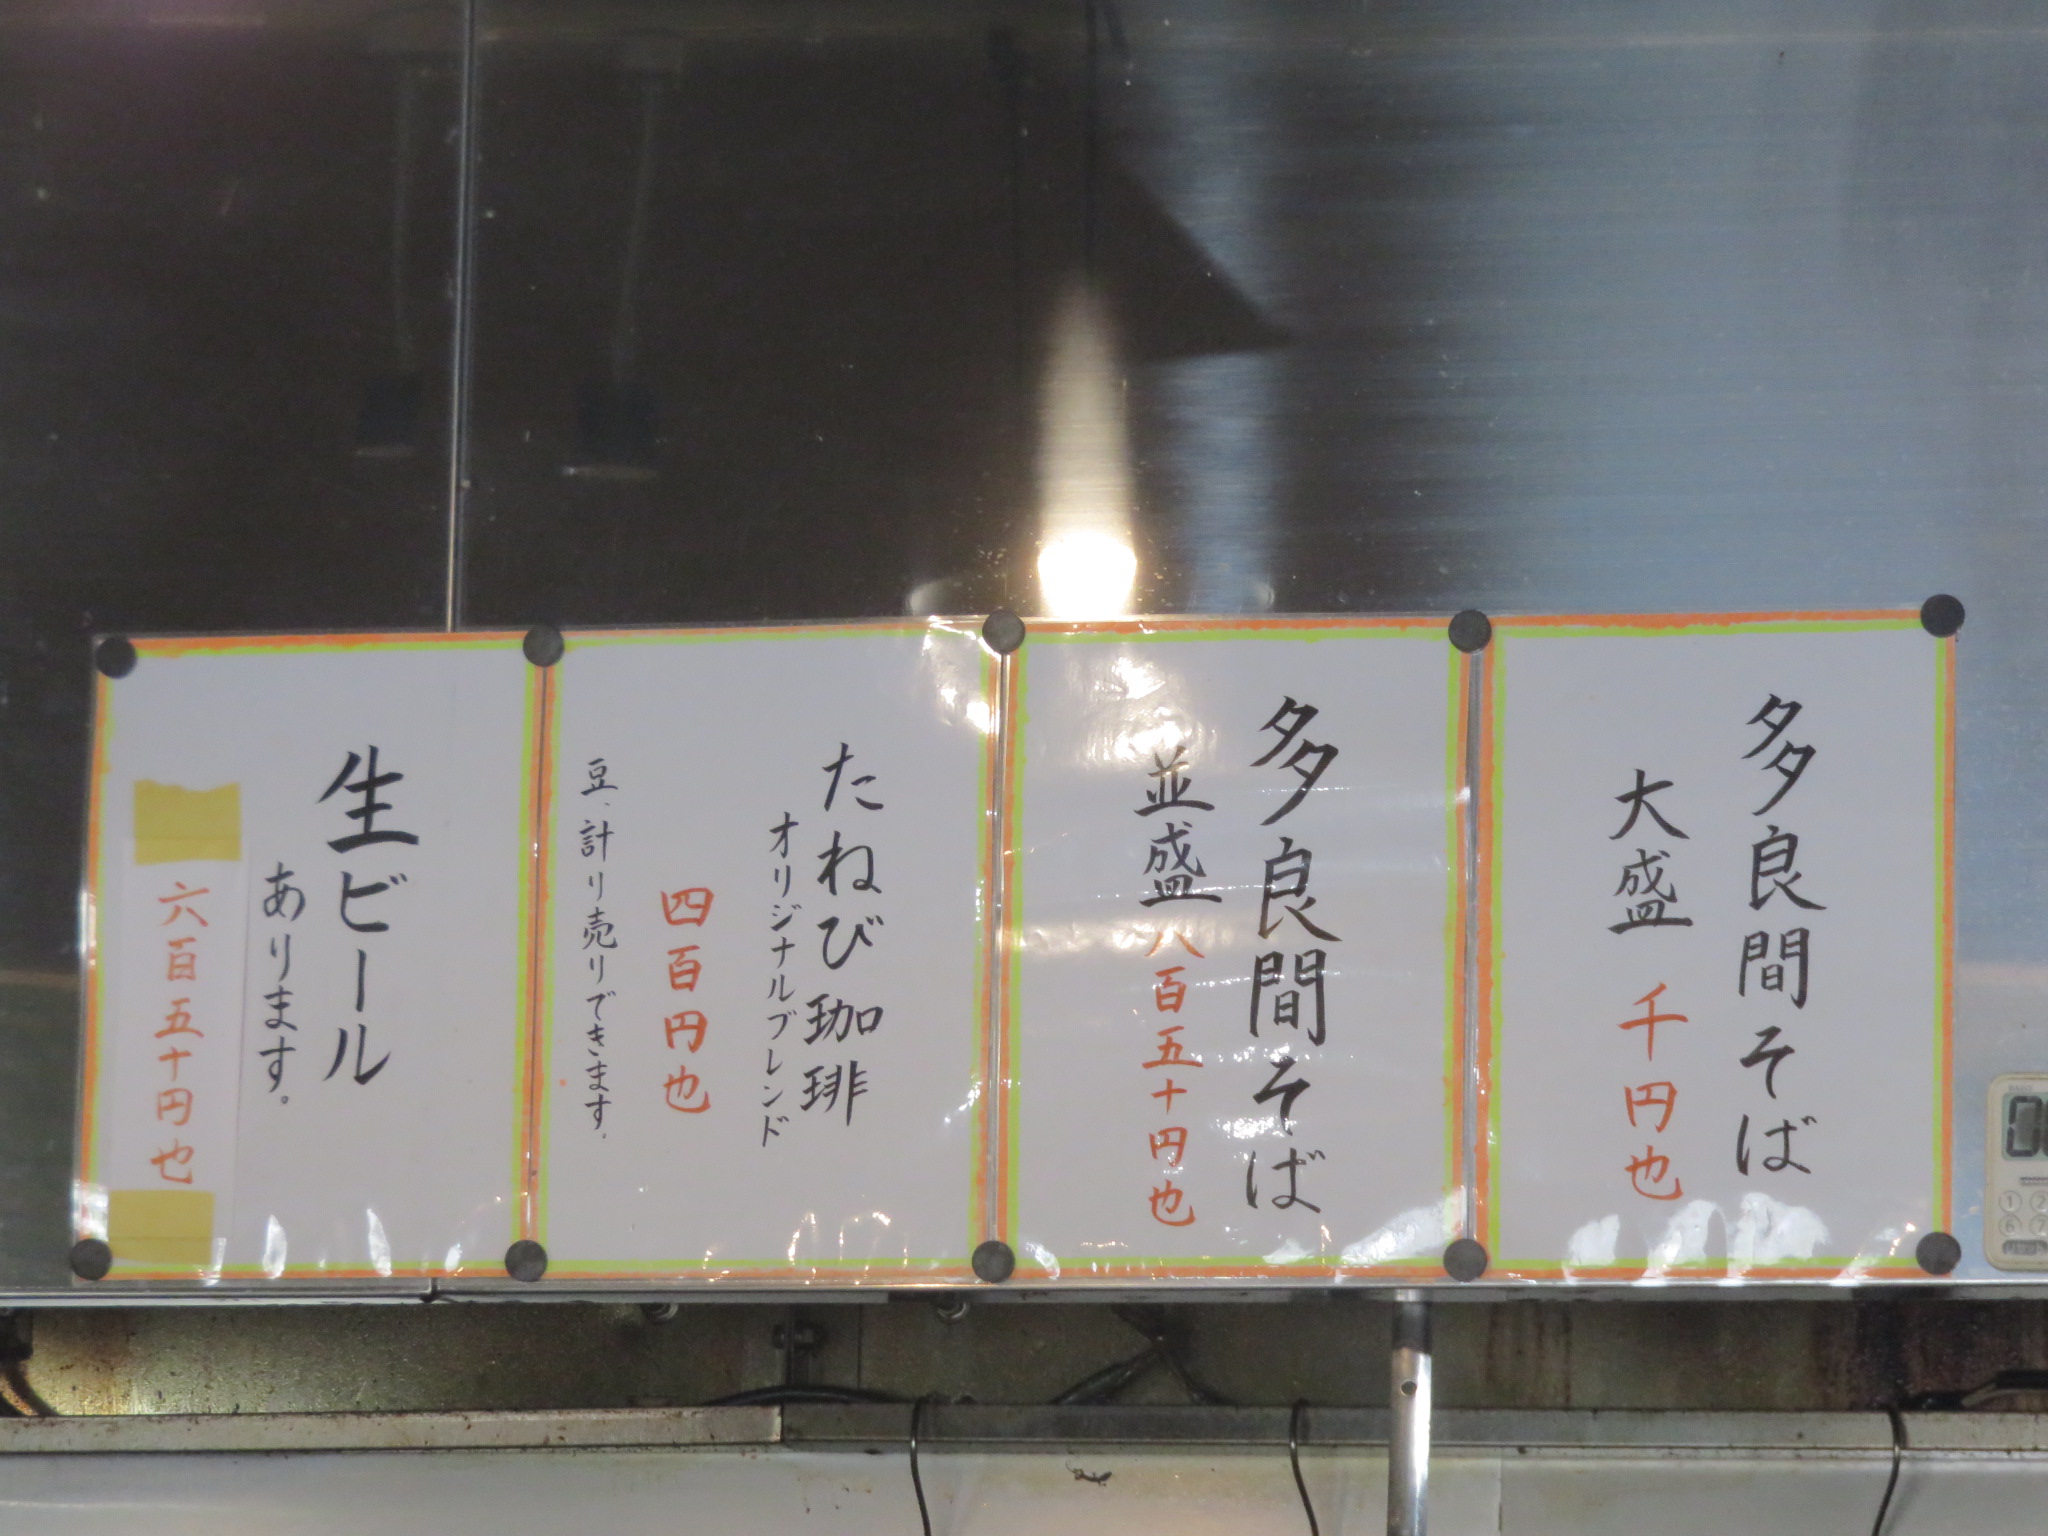 多良間そば
大盛 千円也
多良間そば
並盛 八百五十円也
たねび珈琲
オリジナルブレンド
四百円也
豆、計り売りできます。
生ビール
あります。
六百五十円也